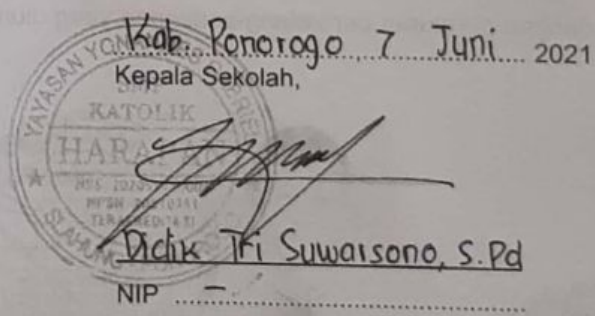 Kab. Ponorogo, 7 Juni 2021
Kepala Sekolah,
YAYASAN
SMP
KATOLIK
HARAPAN
SLAHUNG
Didik Tri Suwarsono, S.Pd
NIP -